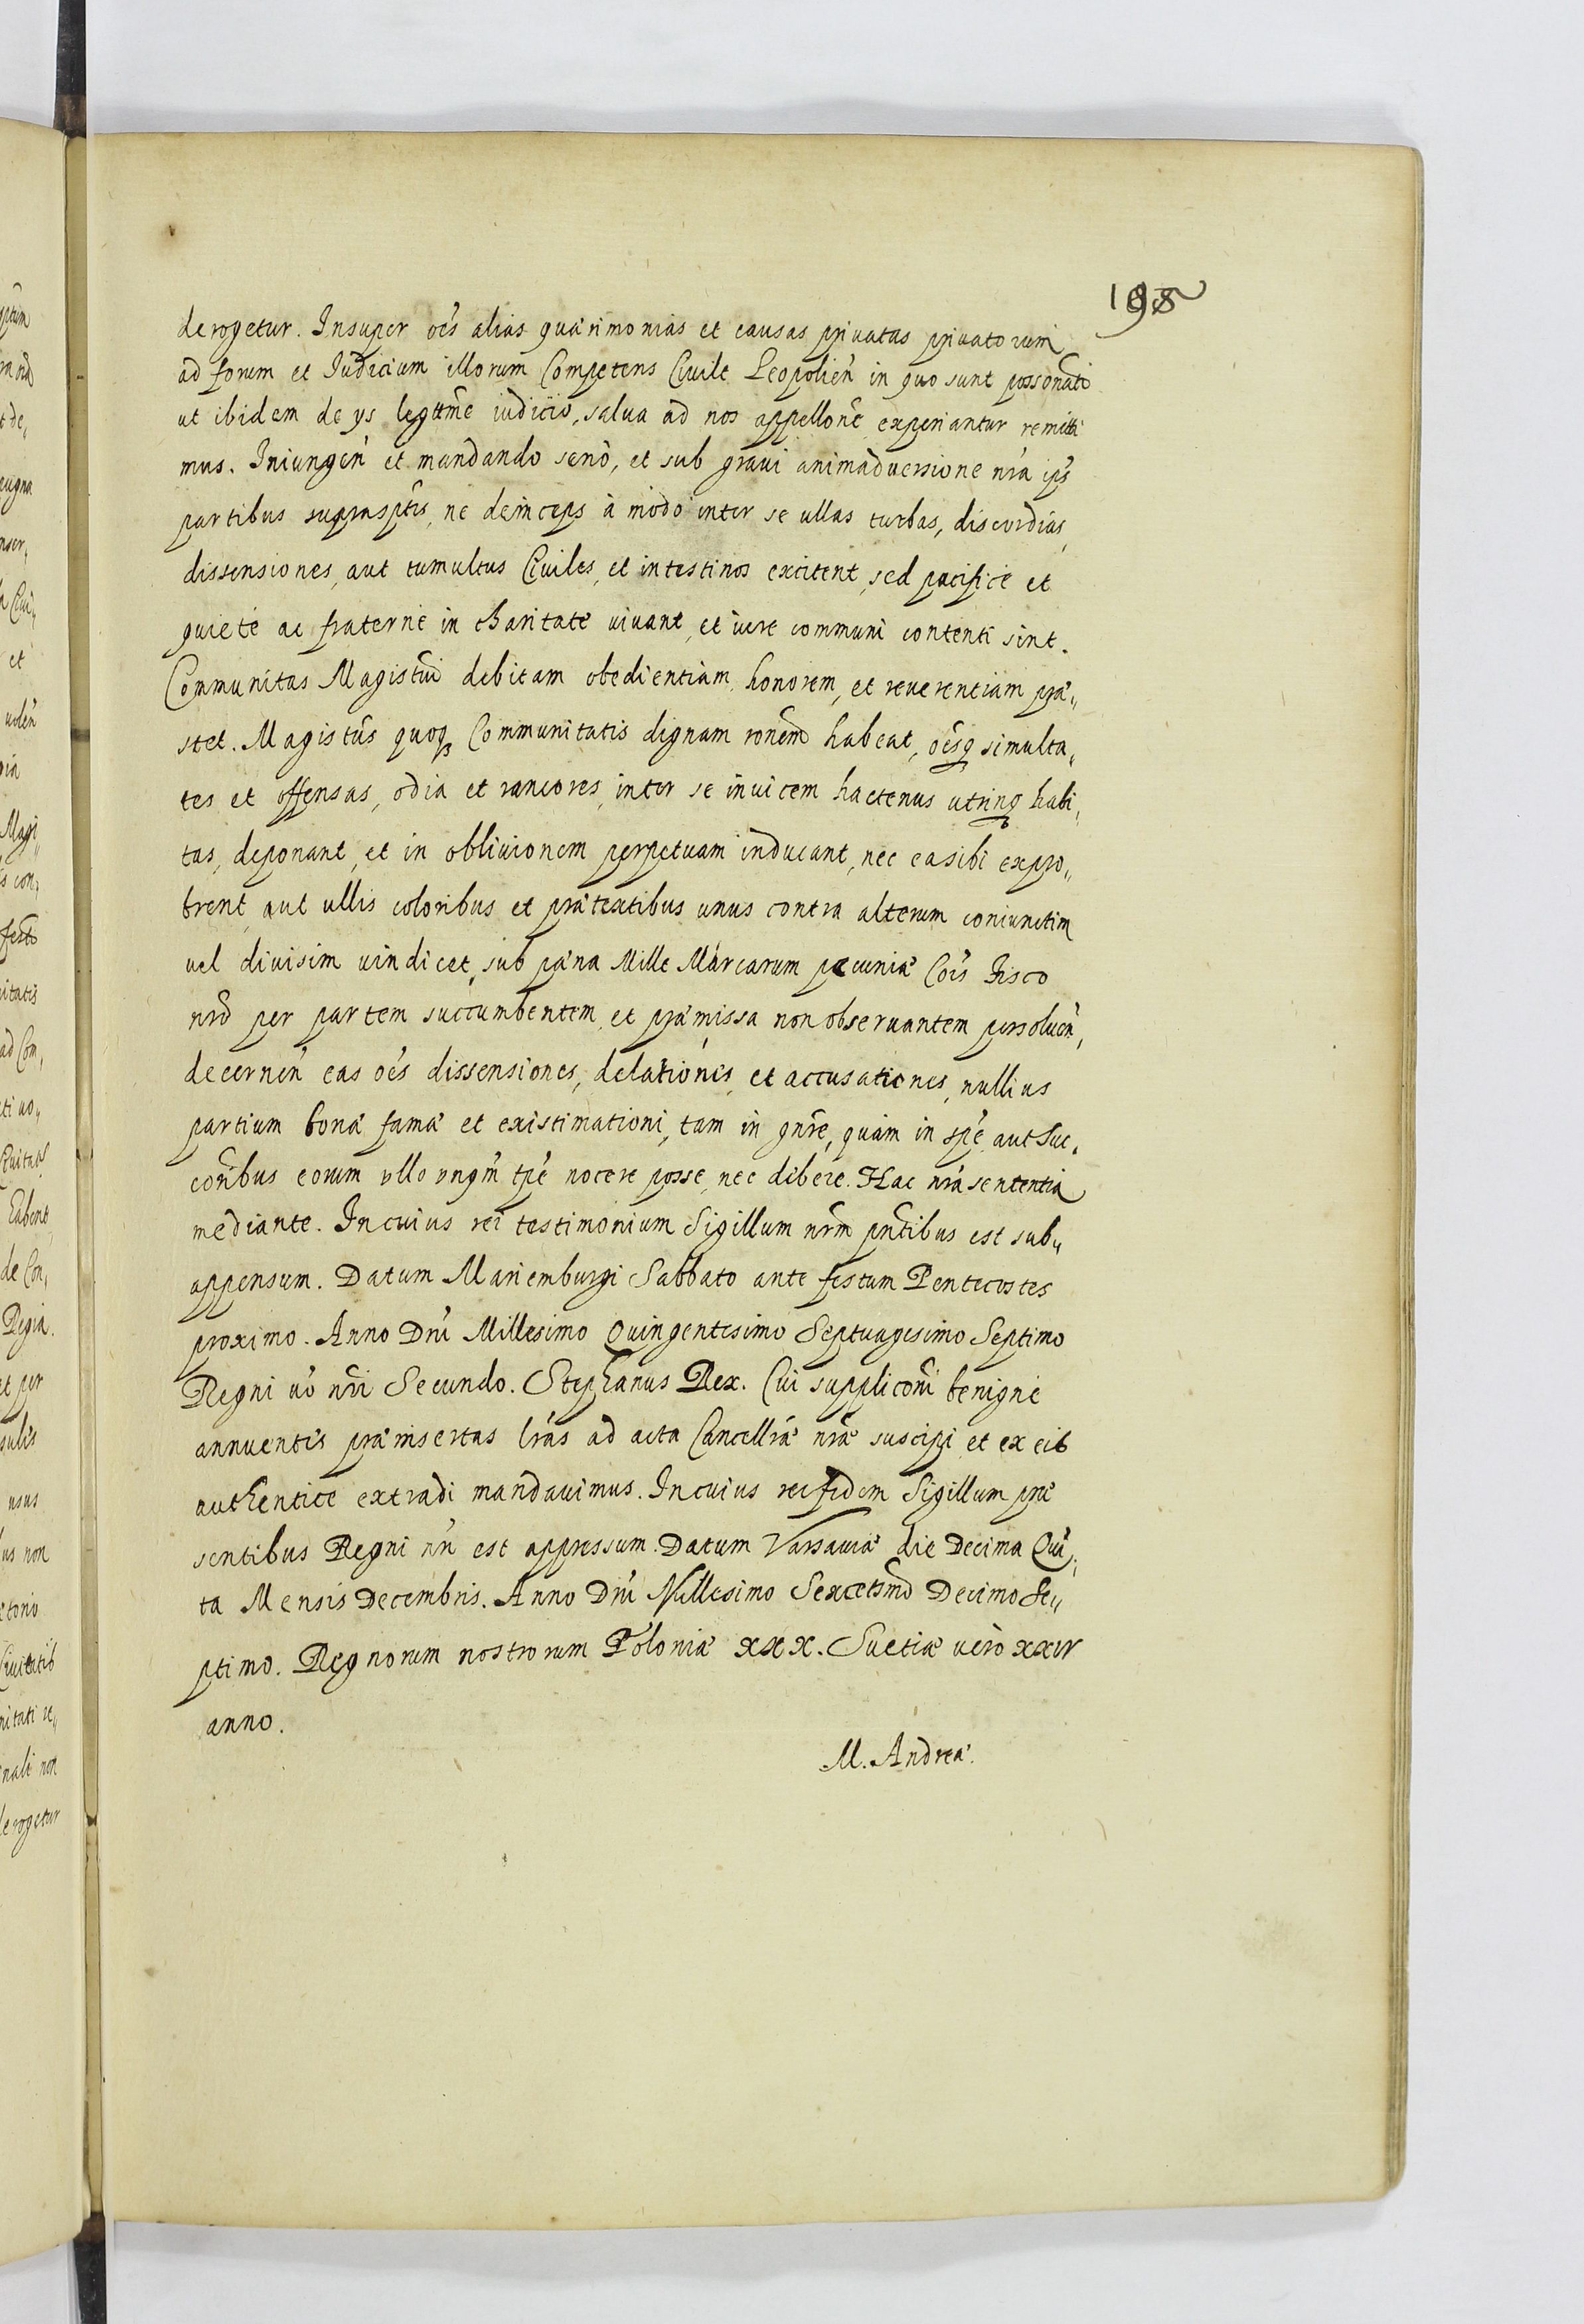 198
derogetur. Insuper oẽs alias quærimonias et causas priuatas priuatorum
ad forum et Iudicium illorum Competens Ciuile Leopolien̄ in quo sunt possonati
ut ibidem de ys legittme iudicio, salua ad nos appellone experiantur remitti
mus. Iniungen̄ et mandando serio, et sub graui animaduersione nr̃a ips
partibus suprasptis, ne deinceps à modo inter se ullas turbas, discordias,
dissensiones, aut tumultus Ciuiles, et intestinos excitent, sed pacifice et
quiete ac fraterne in charitate uiuant, et iure communi contenti sint.
Communitas Magistui debitam obedientiam, honorem, et reuerentiam præ„
stet. Magistus quoq Communitatis dignam ronem habeat, oẽsq simulta„
tes et offensas, odia et rancores, inter se inuicem hactenus utrinq habi„
tas, deponant, et in obliuionem perpetuam inducant, nec ea sibi expro„
brent, aut ullis coloribus et prætextibus unus contra alterum coniunctim
uel diuisim uindicet, sub pæna Mille Marcarum pecuniæ Cois Fisco
nr̃o per partem succumbentem, et præmissa non obseruantem persoluen̄,
decernen̄ eas oẽs dissensiones, delationes, et accusationes, nullius
partium bonæ famæ et existimationi, tam in gnr̃e, quam in spẽ aut Suc„
coribus eorum ullo unqm̃ tpẽ nocere posse, nec debere. Hac nr̃a sententia
mediante. In cuius rei testimonium Sigillum nr̃m pn̄tibus est sub„
appensum. Datum Mariemburgi Sabbato ante festum Pentecostes
proximo. Anno Dnĩ Millesimo Quingentesimo Septuagesimo Septimo
Regni uõ nr̃i Secundo. Stephanus Rex. Cui suppliconi benigne
annuentes præinsertas lr̃as ad acta Cancellr̃æ nr̃æ suscipi et ex eis
authentice extradi mandauimus. In cuius rei fidem Sigillum præ
sentibus Regni nr̃i est appressum. Datum Varsauiæ die Decima Qui„
ta Mensis Decembris. Anno Dnĩ Millesimo Sexcetsmo Decimo Se„
ptimo. Regnorum nostrorum Poloniæ xxx. Suetiæ uero xxiv
anno.
M. Andreæ.